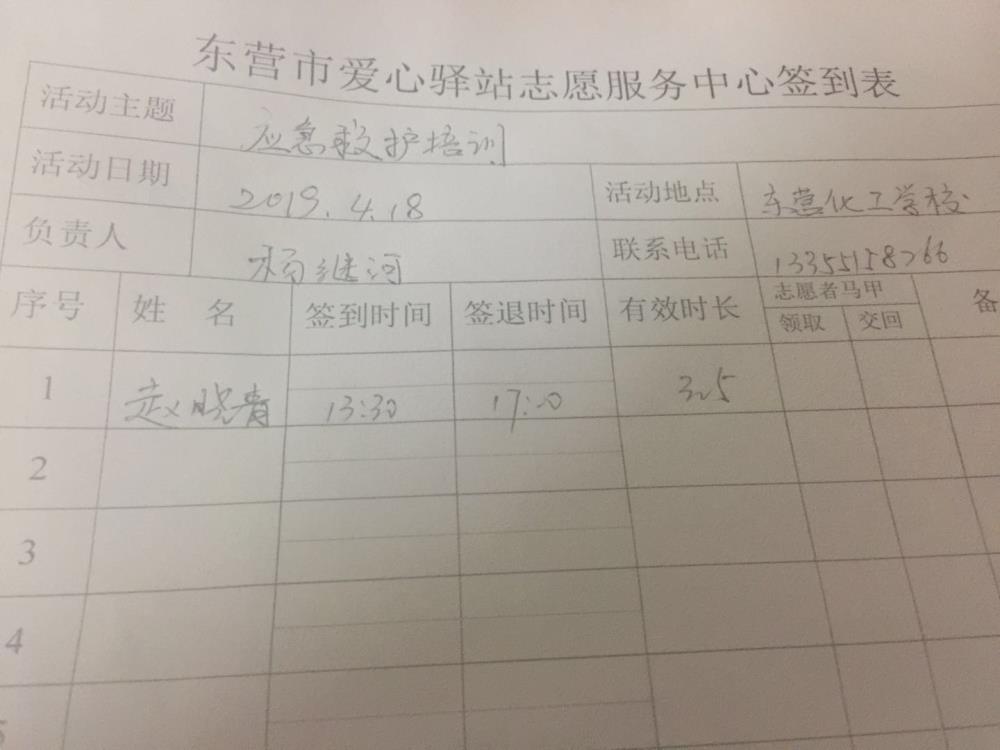 东营市爱心驿站志愿服务中心签到表
活动主题 应急救护培训
活动日期 2019.4.18 活动地点 东营化工学校
负责人 杨继河 联系电话 13355158766
序号 姓 名 签到时间 签退时间 有效时长 志愿者马甲 备
领取 交回
1 赵晓青 13:30 17:00 3.5
2
3
4
5